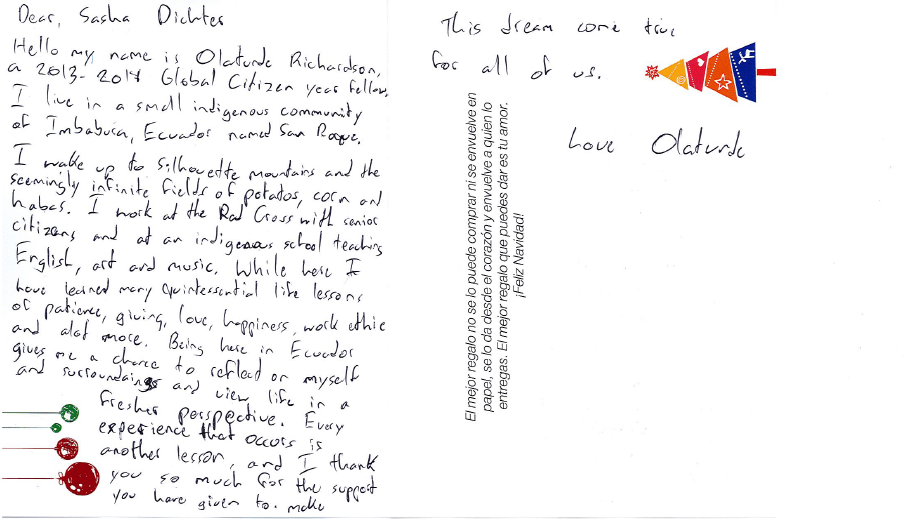 Dear, Sasha Dichter
Hello my name is Olatunde Richardson,
a 2013-2014 Global Citizen year fellow.
I live in a small indigenous community
of Imbabura, Ecuador named San Roque.
I wake up to silhouette mountains and the
seemingly infinite fields of potatos, corn and
habas. I work at the Red Cross with senior
citizens and at an indigenous school teaching
English, art and music. While here I
have learned many quintessential life lessons
of patience, giving, love, happiness, work ethic
and alot more. Being here in Ecuador
gives me a chance to reflect on myself
and surroundings and view life in a
fresher perspective. Every
experience that occurs is
another lesson, and I thank
you so much for the support
you have given to. make
This dream come true
for all of us.
Love Olatunde
El mejor regalo no se lo puede comprar ni se envuelve en
papel, se lo da desde el corazón y envuelve a quien lo
entregas. El mejor regalo que puedes dar es tu amor.
¡Feliz Navidad!